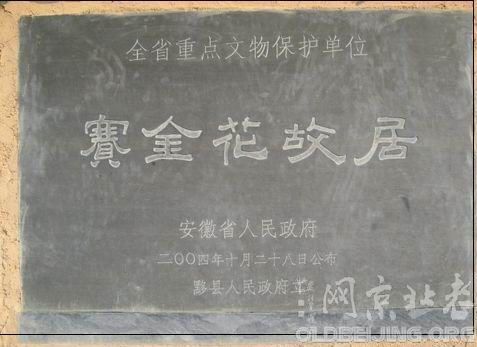 全省重点文物保护单位
賽金花故居
安徽省人民政府
二〇〇四年十月二十八日公布
黟县人民政府立
网京北老
OLDBEIJING.ORG